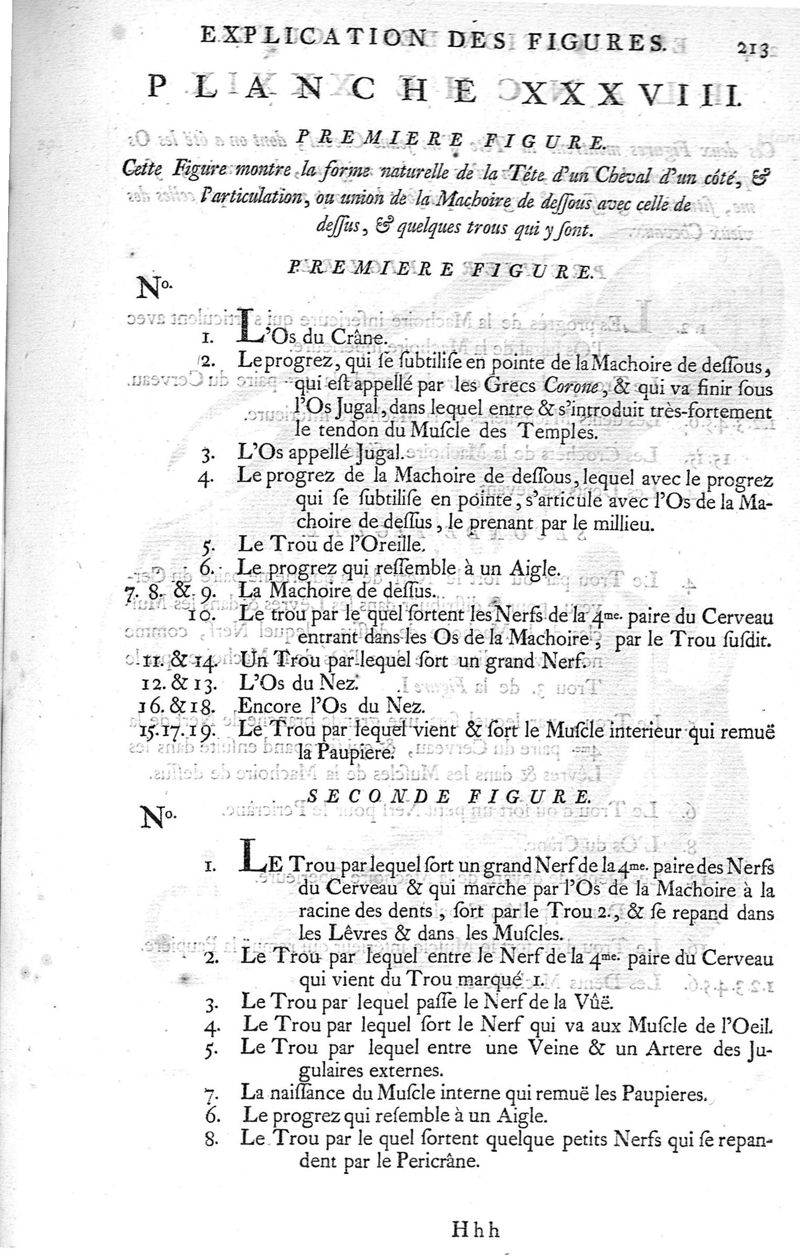 EXPLICATION DES FIGURES. 213
PLANCHE XXXVIII.
PREMIERE FIGURE.
Cette Figure montre la forme naturelle de la Tête d'un Cheval d'un côté, &
l'articulation, ou union de la Machoire de deſſous avec celle de
deſſus, & quelques trous qui y ſont.
PREMIERE FIGURE.
No.
1. L'Os du Crâne.
2. Le progrez, qui ſe ſubtiliſe en pointe de la Machoire de deſſous,
qui eſt appellé par les Grecs Corone, & qui va finir ſous
l'Os Jugal, dans lequel entre & s'introduit très-fortement
le tendon du Muſcle des Temples.
3. L'Os appellé Jugal.
4. Le progrez de la Machoire de deſſous, lequel avec le progrez
qui ſe ſubtiliſe en pointe, s'articule avec l'Os de la Ma-
choire de deſſus, le prenant par le millieu.
5. Le Trou de l'Oreille.
6. Le progrez qui reſſemble à un Aigle.
7. 8. & 9. La Machoire de deſſus.
10. Le trou par le quel ſortent les Nerfs de la 4me. paire du Cerveau
entrant dans les Os de la Machoire, par le Trou ſuſdit.
11. & 14. Un Trou par lequel ſort un grand Nerf.
12. & 13. L'Os du Nez.
16. & 18. Encore l'Os du Nez.
15. 17. 19. Le Trou par leſquel vient & ſort le Muſcle interieur qui remuë
la Paupiere.
SECONDE FIGURE.
No.
1. LE Trou par lequel ſort un grand Nerf de la 4me. paire des Nerfs
du Cerveau & qui marche par l'Os de la Machoire à la
racine des dents, ſort par le Trou 2., & ſe repand dans
les Lêvres & dans les Muſcles.
2. Le Trou par lequel entre le Nerf de la 4me. paire du Cerveau
qui vient du Trou marqué 1.
3. Le Trou par lequel paſſe le Nerf de la Vûë.
4. Le Trou par lequel ſort le Nerf qui va aux Muſcle de l'Oeil.
5. Le Trou par lequel entre une Veine & un Artere des Ju-
gulaires externes.
7. La naiſſance du Muſcle interne qui remuë les Paupieres.
6. Le progrez qui reſemble à un Aigle.
8. Le Trou par le quel ſortent quelque petits Nerfs qui ſe repan-
dent par le Pericrâne.
Hhh